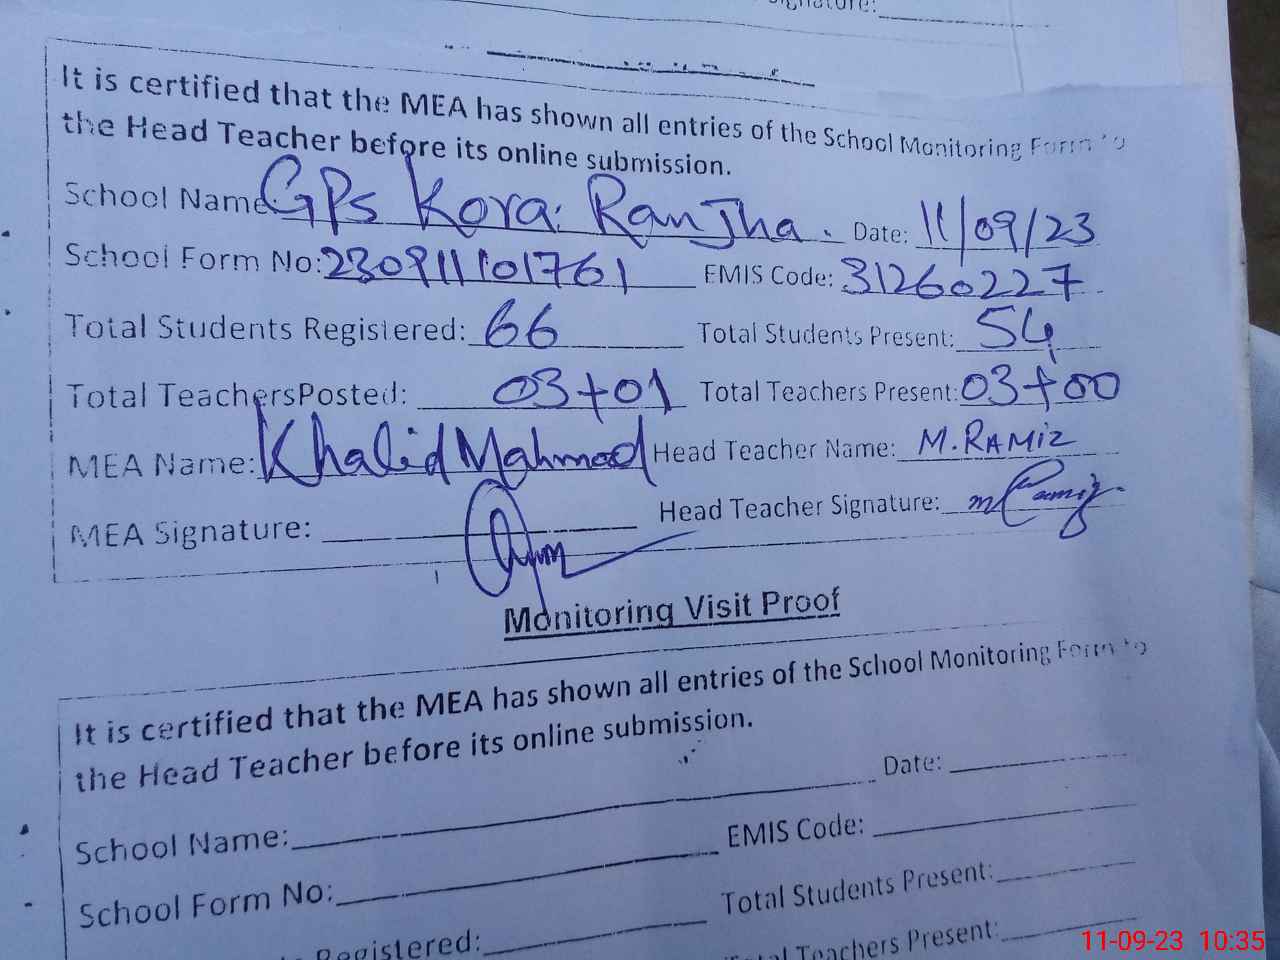 Signature:
It is certified that the MEA has shown all entries of the School Monitoring Form to
the Head Teacher before its online submission.
School Name GPs Kora Ranjha. Date: 11/09/23
School Form No: 230911101761 EMIS Code: 31260227
Total Students Registered: 66 Total Students Present: 54
Total TeachersPosted: 03+01 Total Teachers Present: 03+00
MEA Name: Khalid Mahmood Head Teacher Name: M.RAMIZ
MEA Signature: Head Teacher Signature: m Ramiz
Monitoring Visit Proof
It is certified that the MEA has shown all entries of the School Monitoring Form to
the Head Teacher before its online submission.
School Name: Date:
School Form No: EMIS Code:
Registered: Total Students Present:
Total Teachers Present:
11-09-23 10:35